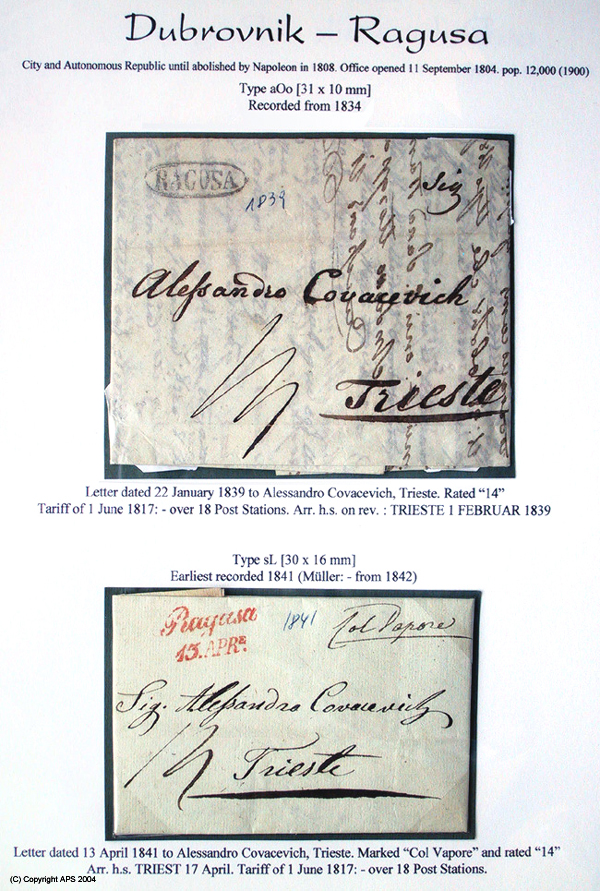 Dubrovnik – Ragusa
City and Autonomous Republic until abolished by Napoleon in 1808. Office opened 11 September 1804. pop. 12,000 (1900)
Type aOo [31 x 10 mm]
Recorded from 1834
RAGUSA
1839
Sig
Alessandro Covacevich
14
Trieste
Letter dated 22 January 1839 to Alessandro Covacevich, Trieste. Rated “14”
Tariff of 1 June 1817: - over 18 Post Stations. Arr. h.s. on rev. : TRIESTE 1 FEBRUAR 1839
Type sL [30 x 16 mm]
Earliest recorded 1841 (Müller: - from 1842)
Ragusa
13. APR:
1841
Col Vapore
Sig. Alessandro Covacevich
14
Trieste
Letter dated 13 April 1841 to Alessandro Covacevich, Trieste. Marked “Col Vapore” and rated “14”
Arr. h.s. TRIEST 17 April. Tariff of 1 June 1817: - over 18 Post Stations.
(C) Copyright APS 2004